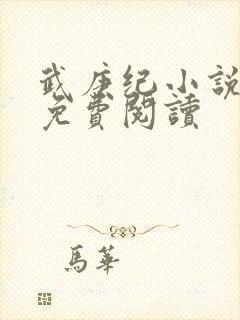 武庚纪小説
免費閱讀
馬華